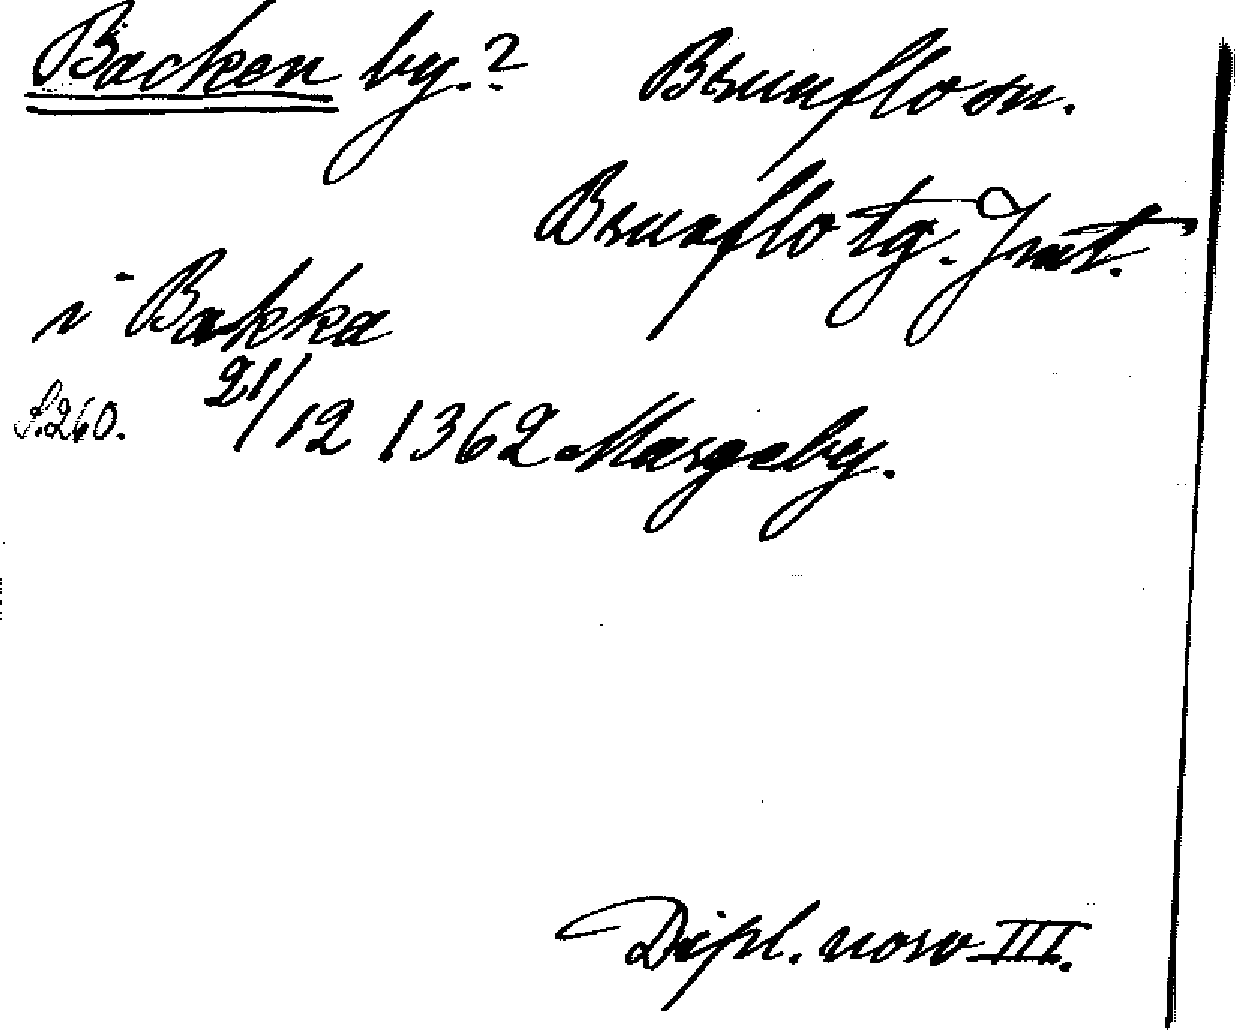 Backen by.? Brunflo sn.
Brunflo tg. Jmt.
i Bakka
S.260. 21/12 1362 Margaby.
Dipl. norv III.